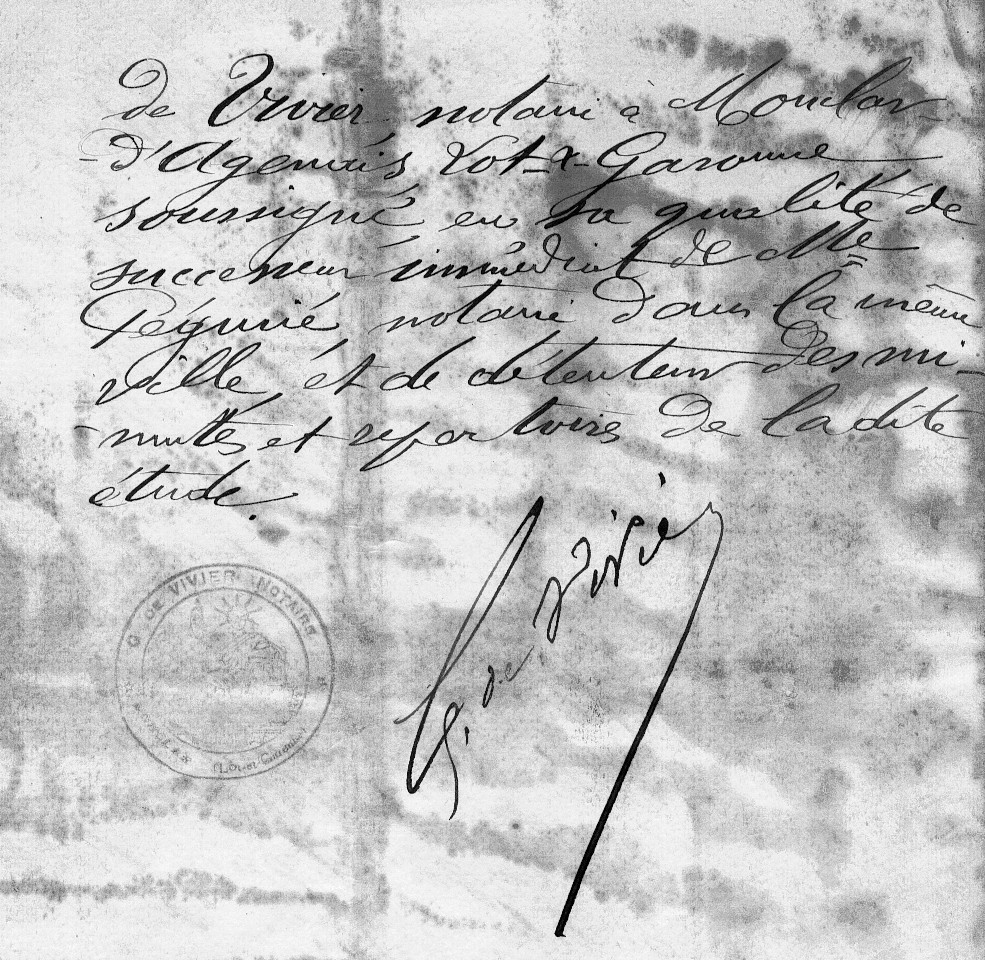 de Vivier notaire à Monclar-
-d'Agenais Lot-&-Garonne
soussigné en sa qualité de
successeur immédiat de Me
notaire dans la même
ville et de détenteur des mi-
nutes et repertoires de ladite
étude.
G. de Vivié
G. DE VIVIER NOTAIRE
(Lot-et-Garonne)